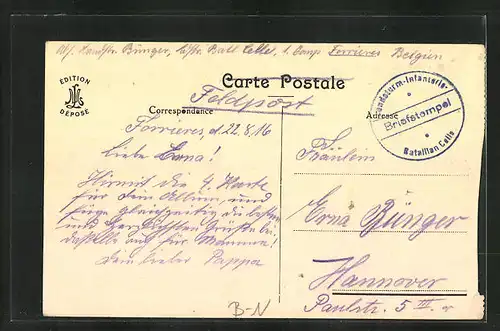 Abs. Landstr. Bünger, Lstr. Batl Celle, 1. Comp. Forrieres Belgien
EDITION
DÉPOSÉ
Carte Postale
Feldpost
Correspondance
Adresse
Landsturm-Infanterie-
Briefstempel
Bataillon Celle
Forrieres, d. 22.8.16
Liebe Erna!
Hiermit die 4. Karte
für dein Album, und
füge gleichzeitig die besten
und herzlichsten Grüße bei
dasselbe auch für Mamma!
Dein lieber Pappa
Fräulein
Erna Bünger
Hannover
Paulstr. 5 III. r
B-N